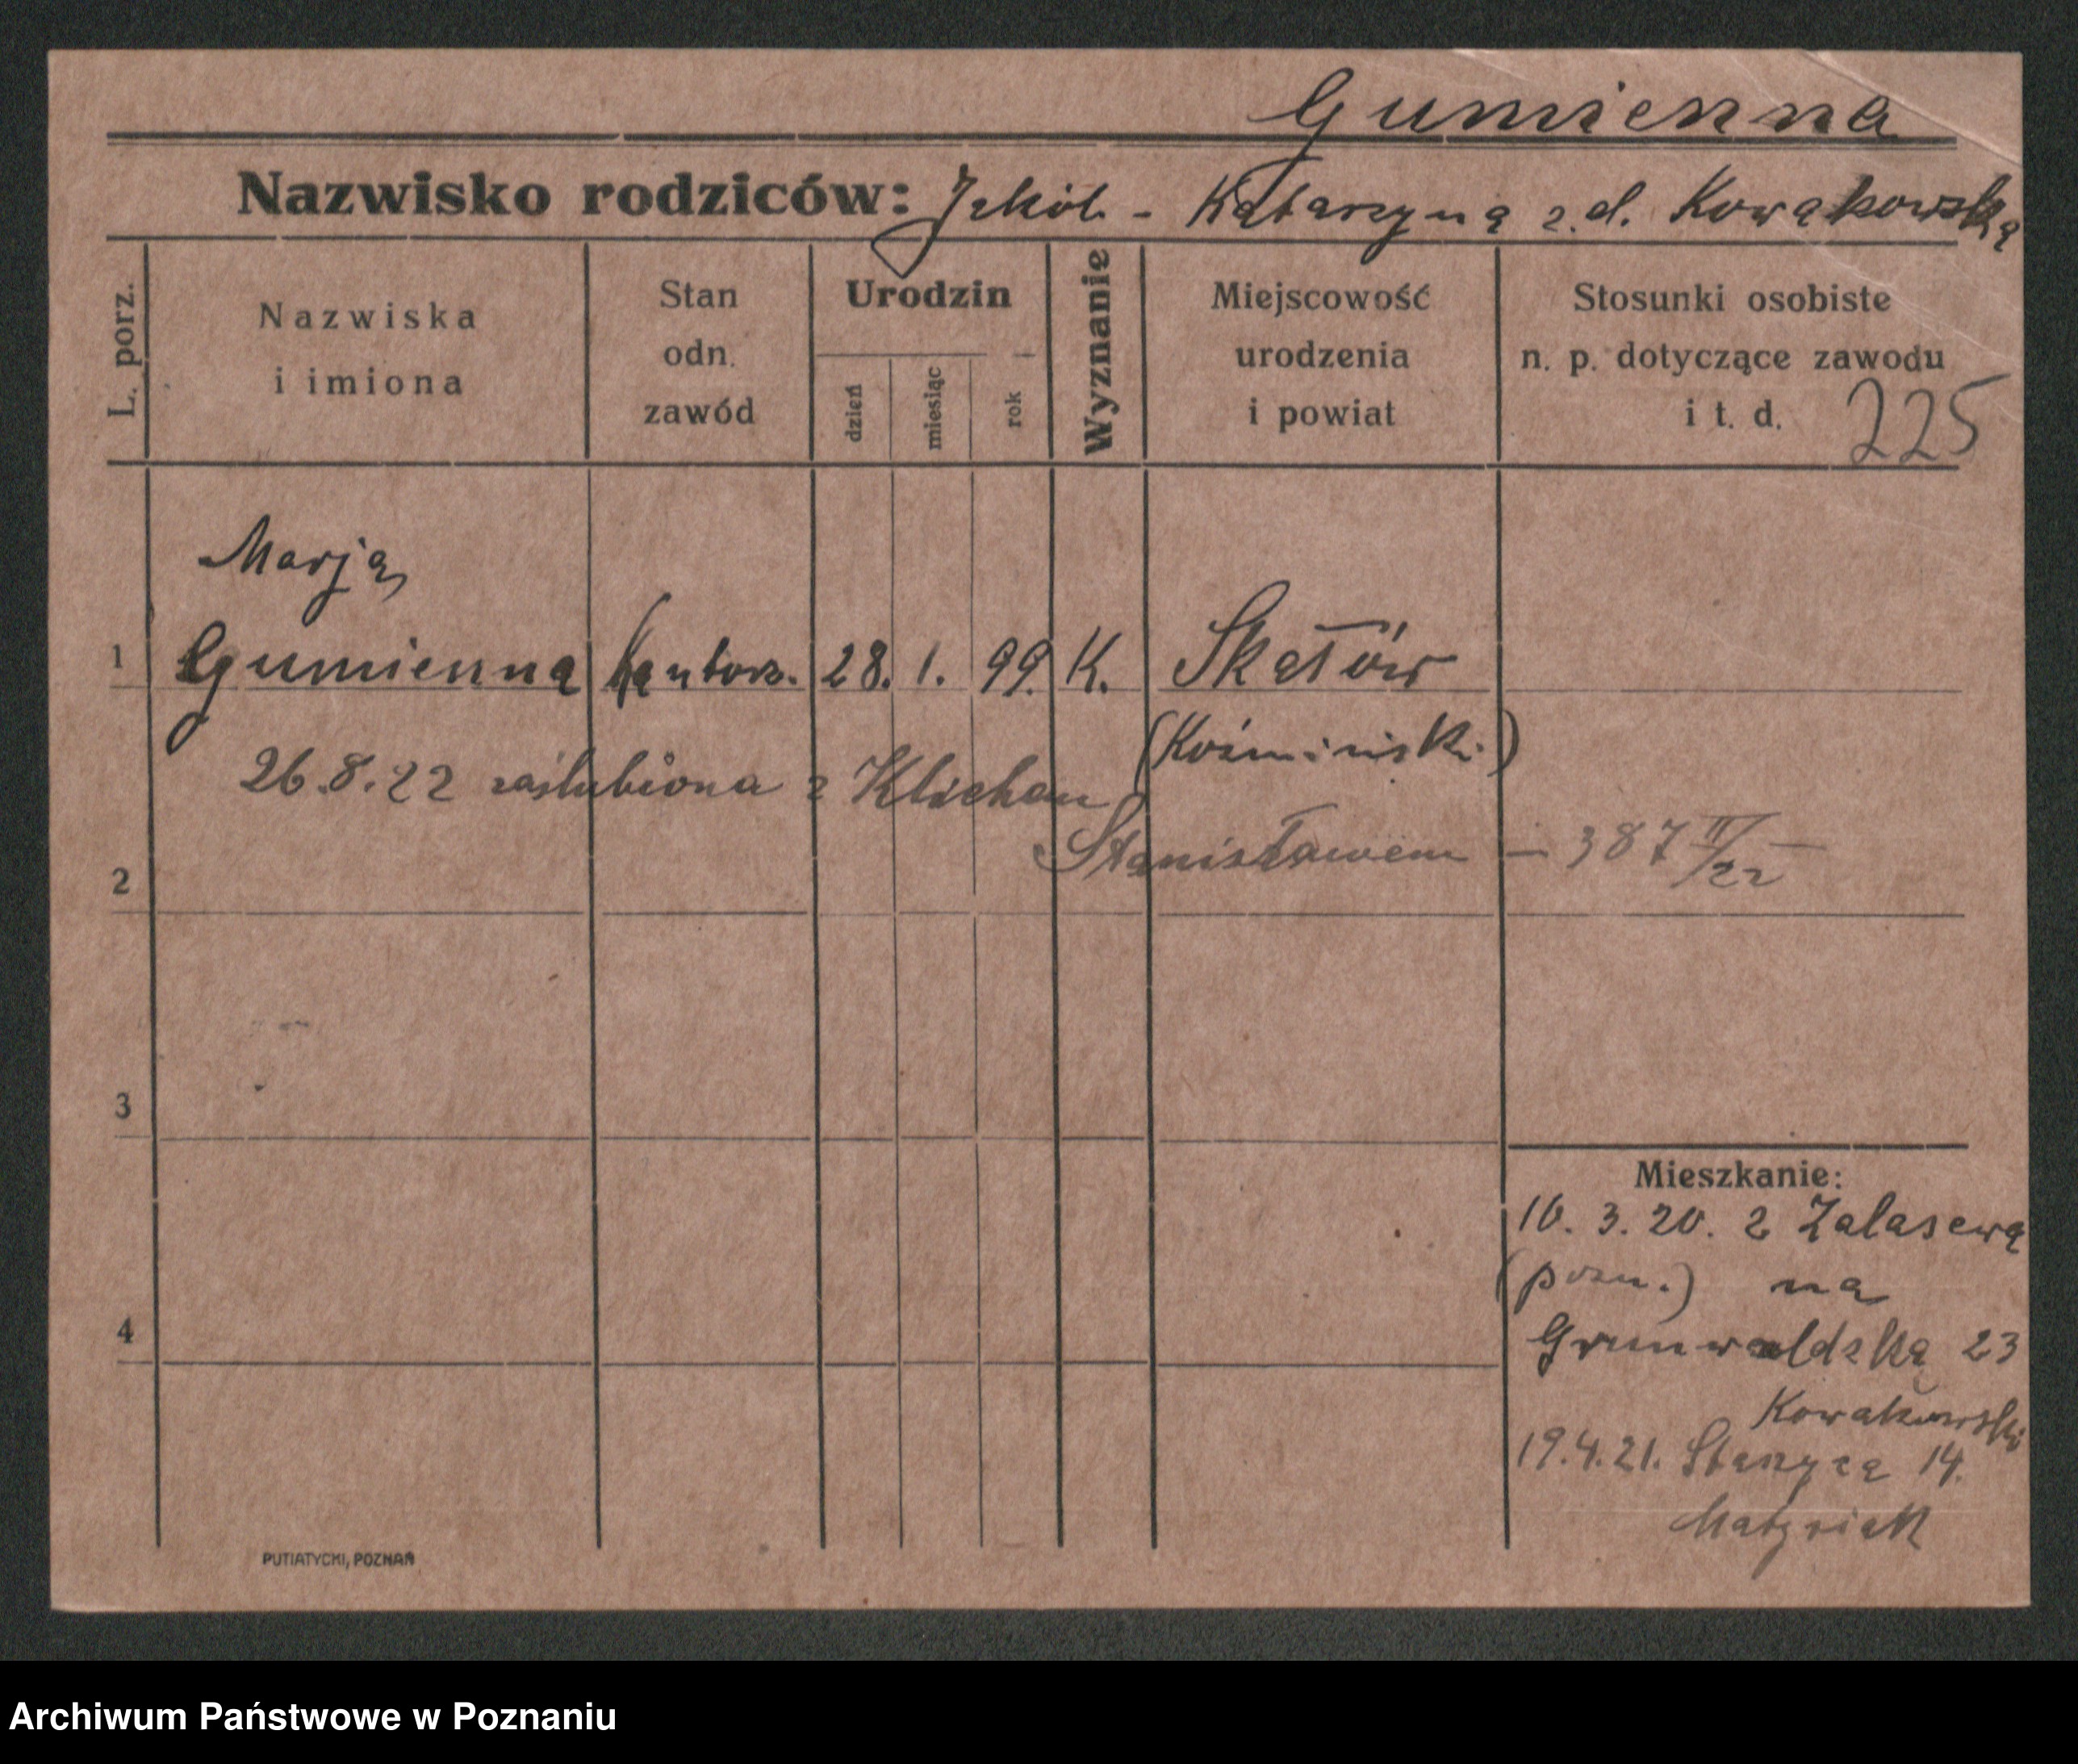 Gumienna
Nazwisko rodziców: Jakób - Katarzyna z.d. Kowakowska
L. porz.
Nazwiska
i imiona
Stan
odn.
zawód
Urodzin
dzień
miesiąc
rok
Wyznanie
Miejscowość
urodzenia
i powiat
Stosunki osobiste
n. p. dotyczące zawodu
i t. d. 225
Marja
1 Gumienna kantorz. 28. 1. 99. K. Skałów
(Koźmiński)
26.8.22 zaślubiona z Klichem
Stanisławem — 387 II/22 —
2
3
4
Mieszkanie:
10. 3. 20. z Zalasewa
(pozn.) na
Grunwaldzka 23
Kowakowski
19.4.21. Staszyca 14.
Matysiak
PUTIATYCKI, POZNAŃ
Archiwum Państwowe w Poznaniu